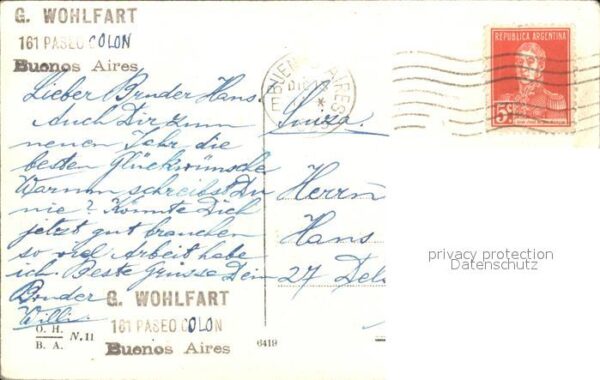 G. WOHLFART
161 PASEO COLON
Buenos Aires
Lieber Bruder Hans.
Auch Dir zum
neuen Jahr die
besten Glückwünsche
Warum schreibst Du
nie? Könnte Dich
jetzt gut brauchen
so viel Arbeit habe
ich. Beste Grüsse Dein
Bruder
Willi
G. WOHLFART
161 PASEO COLON
Buenos Aires
O. H.
B. A.
N. 11
6419
BUENOS AIRES
REPUBLICA ARGENTINA
5c
Herrn
Hans
27
privacy protection
Datenschutz